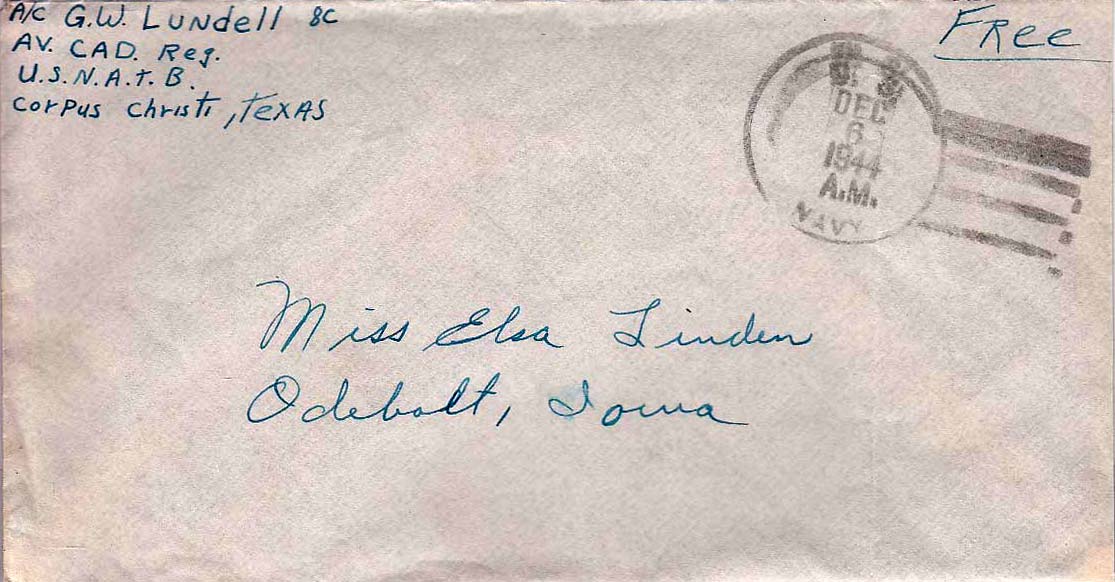 A/C G.W. Lundell 8C
AV. CAD. Reg.
U.S.N.A.T.B.
Corpus Christi, TEXAS
FRee
U. S.
DEC
6
1944
A.M.
NAVY
Miss Elsa Linden
Odebolt, Iowa